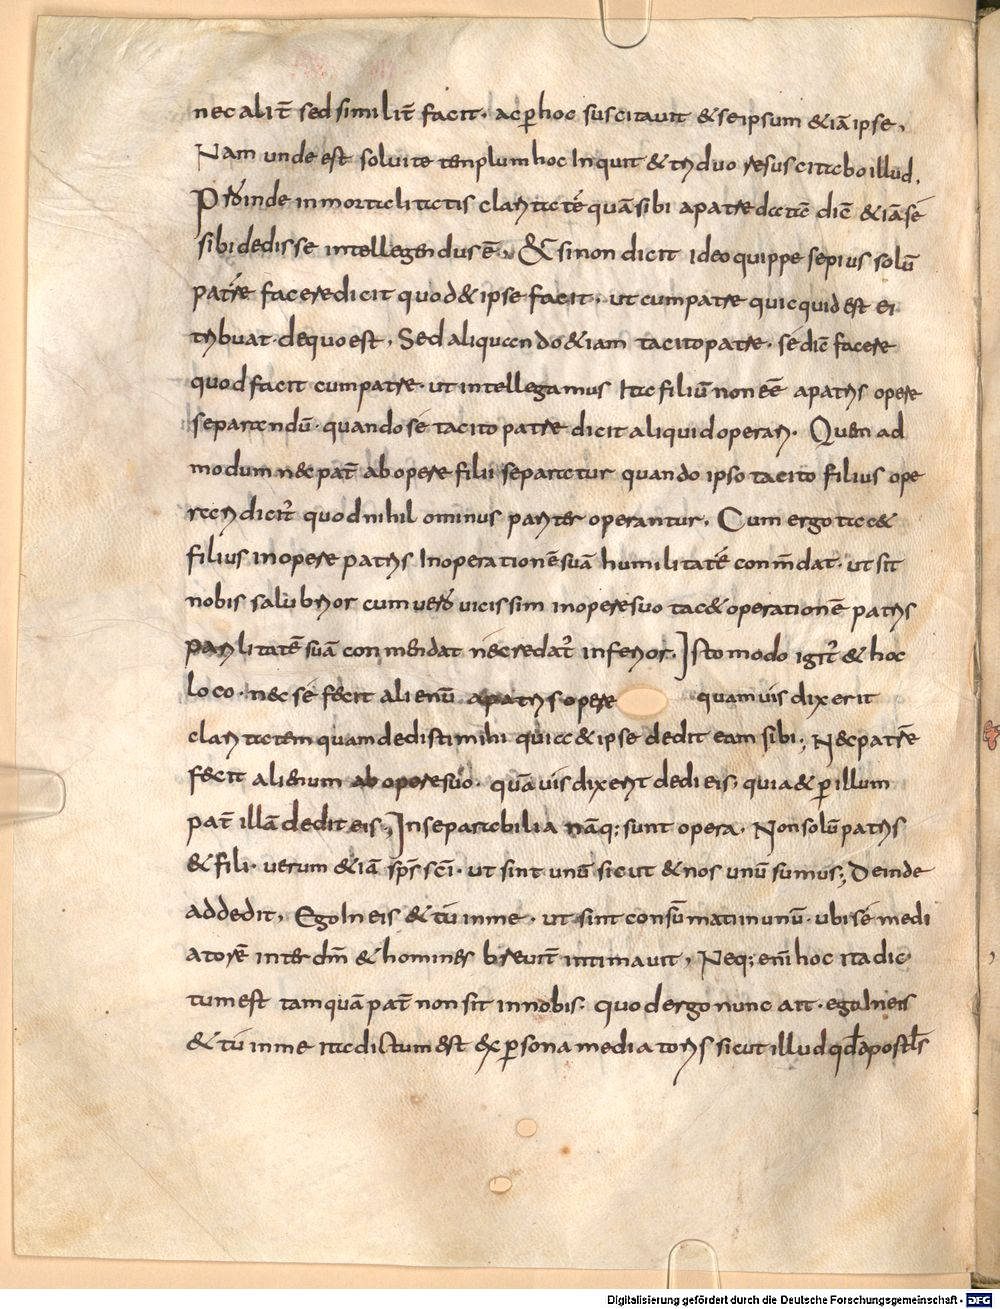 nec alit̄ sed similit̄ facit. ac p̄ hoc suscitauit & se ipsum & iā ipse,
Nam unde est soluite templum hoc Inquit & triduo resuscitabo illud.
Proinde inmortalitatis claritatē quā sibi a patre datā diē & iā sé
sibi dedisse intellegendus ē. & si non dicit ideo quippe sepius solū
patrē facere dicit quod & ipse facit. ut cum patre quicquid est ei
tribuat. de quo est, Sed aliquando & iam tacito patre. sé diē facere
quod facit cum patre. ut intellegamus Ita filiū non eē a patris opere
separandū. quando sé tacito patre dicit aliquid operari. Quem ad
modum nec pat̄ ab opere filii separatur quando ipso tacito filius ope
rari dicit̄ quod nihil ominus pariter operantur. Cum ergo tac&
filius in opere patris In operationē suā humilitatē conm̄dat. ut sit
nobis salubrior cum uero uicissim in opere suo tac& operationē patris
parilitatē suā conmendat ne credat̄ inferior. Isto modo igit̄ & hoc
loco. nec sé fecit alienū a patris opere quam uis dixerit
claritatem quam dedisti mihi quia & ipse dedit eam sibi; Nec patrē
fecit alienum ab opere suo. quā uis dixerit dedi eis, quia & p̄ illum
pat̄ illā dedit eis, Inseparabilia nāq; sunt opera. Non solū patris
& fili. uerum & iā sp̄s sc̄i. ut sint unū sicut & nos unū sumus; Deinde
addedit, Ego In eis & tú in me. ut sint consūmati in unū. ubi sé medi
atorē inter dm̄ & homines breuit̄ intimauit, Neq; eni̅ hoc ita dic
tum est tamquā pat̄ non sit in nobis. quod ergo nunc ait. ego In eis
& tú in me ita dictum est ex p̄sona mediatoris sicut illud qd̄ apostl̄s